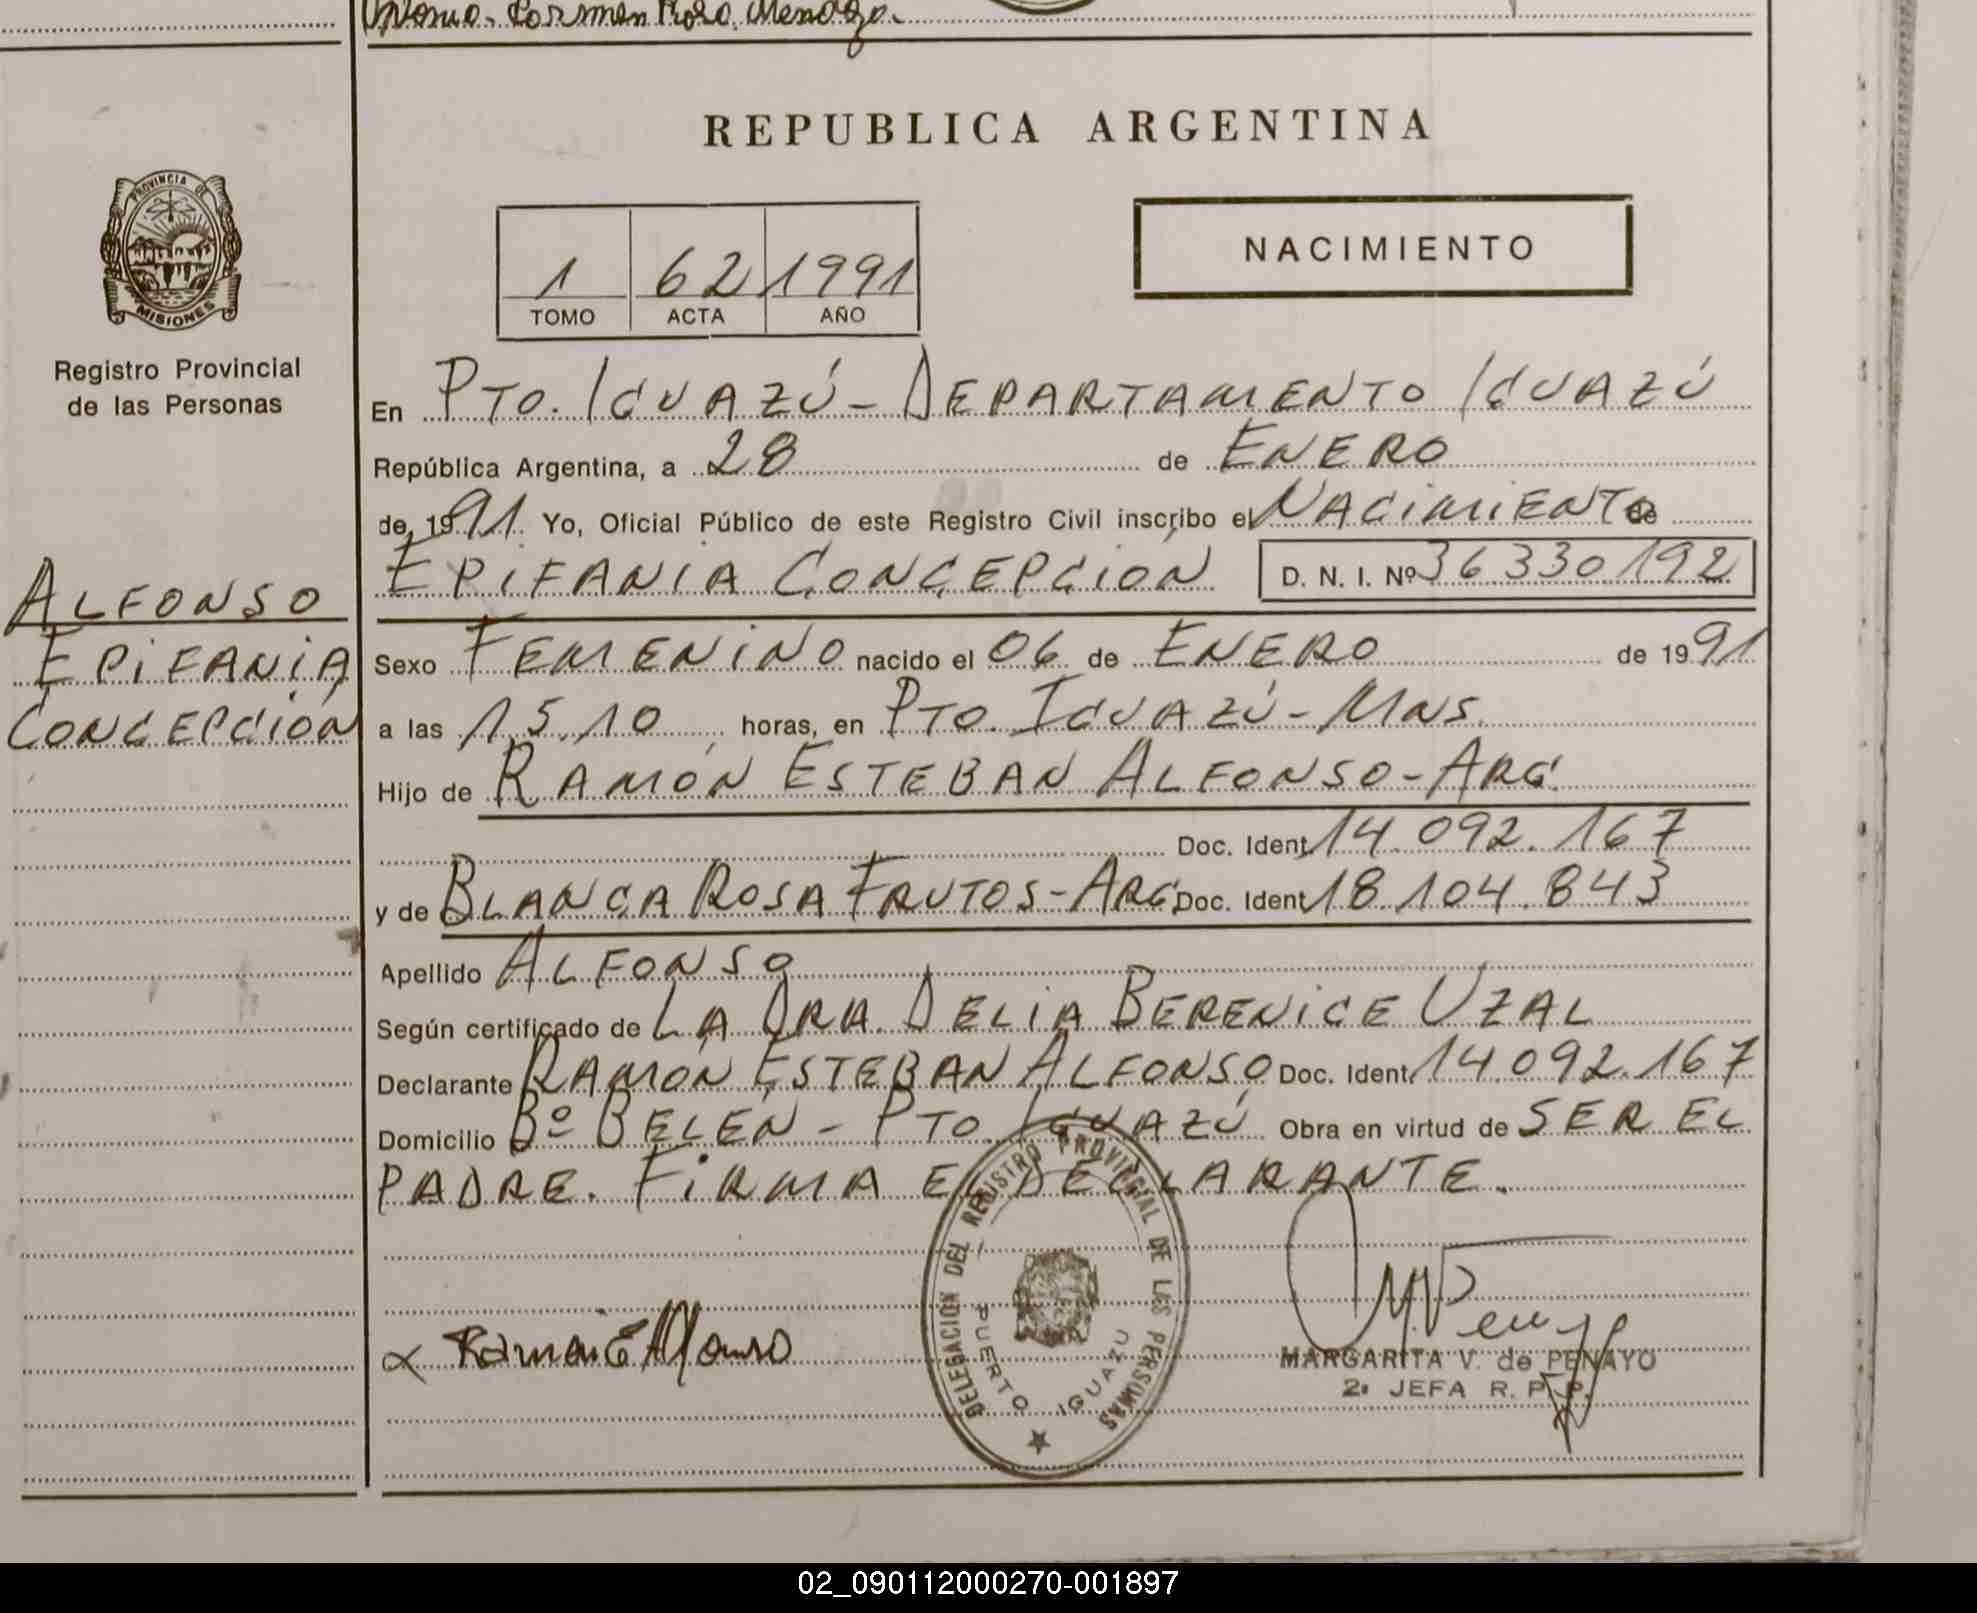 Antonio. Carmen Rosa Mendoza.
REPUBLICA ARGENTINA
PROVINCIA DE
MISIONES
Registro Provincial
de las Personas
NACIMIENTO
1 62 1991
TOMO ACTA AÑO
En PTO. IGUAZÚ - DEPARTAMENTO IGUAZÚ
República Argentina, a 28 de ENERO
de 1991 Yo, Oficial Público de este Registro Civil inscribo el NACIMIENTO de
EPIFANIA CONCEPCIÓN D. N. I. Nº 36330192
ALFONSO
EPIFANIA
CONCEPCIÓN
Sexo FEMENINO nacido el 06 de ENERO de 1991
a las 15,10 horas, en PTO. IGUAZÚ - MNS.
Hijo de RAMÓN ESTEBAN ALFONSO - ARG.
Doc. Ident. 14.092.167
y de BLANCA ROSA FRUTOS - ARG. Doc. Ident. 18.104.843
Apellido ALFONSO
Según certificado de LA DRA. DELIA BERENICE UZAL
Declarante RAMÓN ESTEBAN ALFONSO Doc. Ident. 14.092.167
Domicilio Bº BELÉN - PTO. IGUAZÚ Obra en virtud de SER EL
PADRE. FIRMA EL DECLARANTE.
DELEGACION DEL REGISTRO PROVINCIAL DE LAS PERSONAS
PUERTO IGUAZU
Ramon E Alfonso
MARGARITA V. de PENAYO
2ª JEFA R. P. P.
02_090112000270-001897